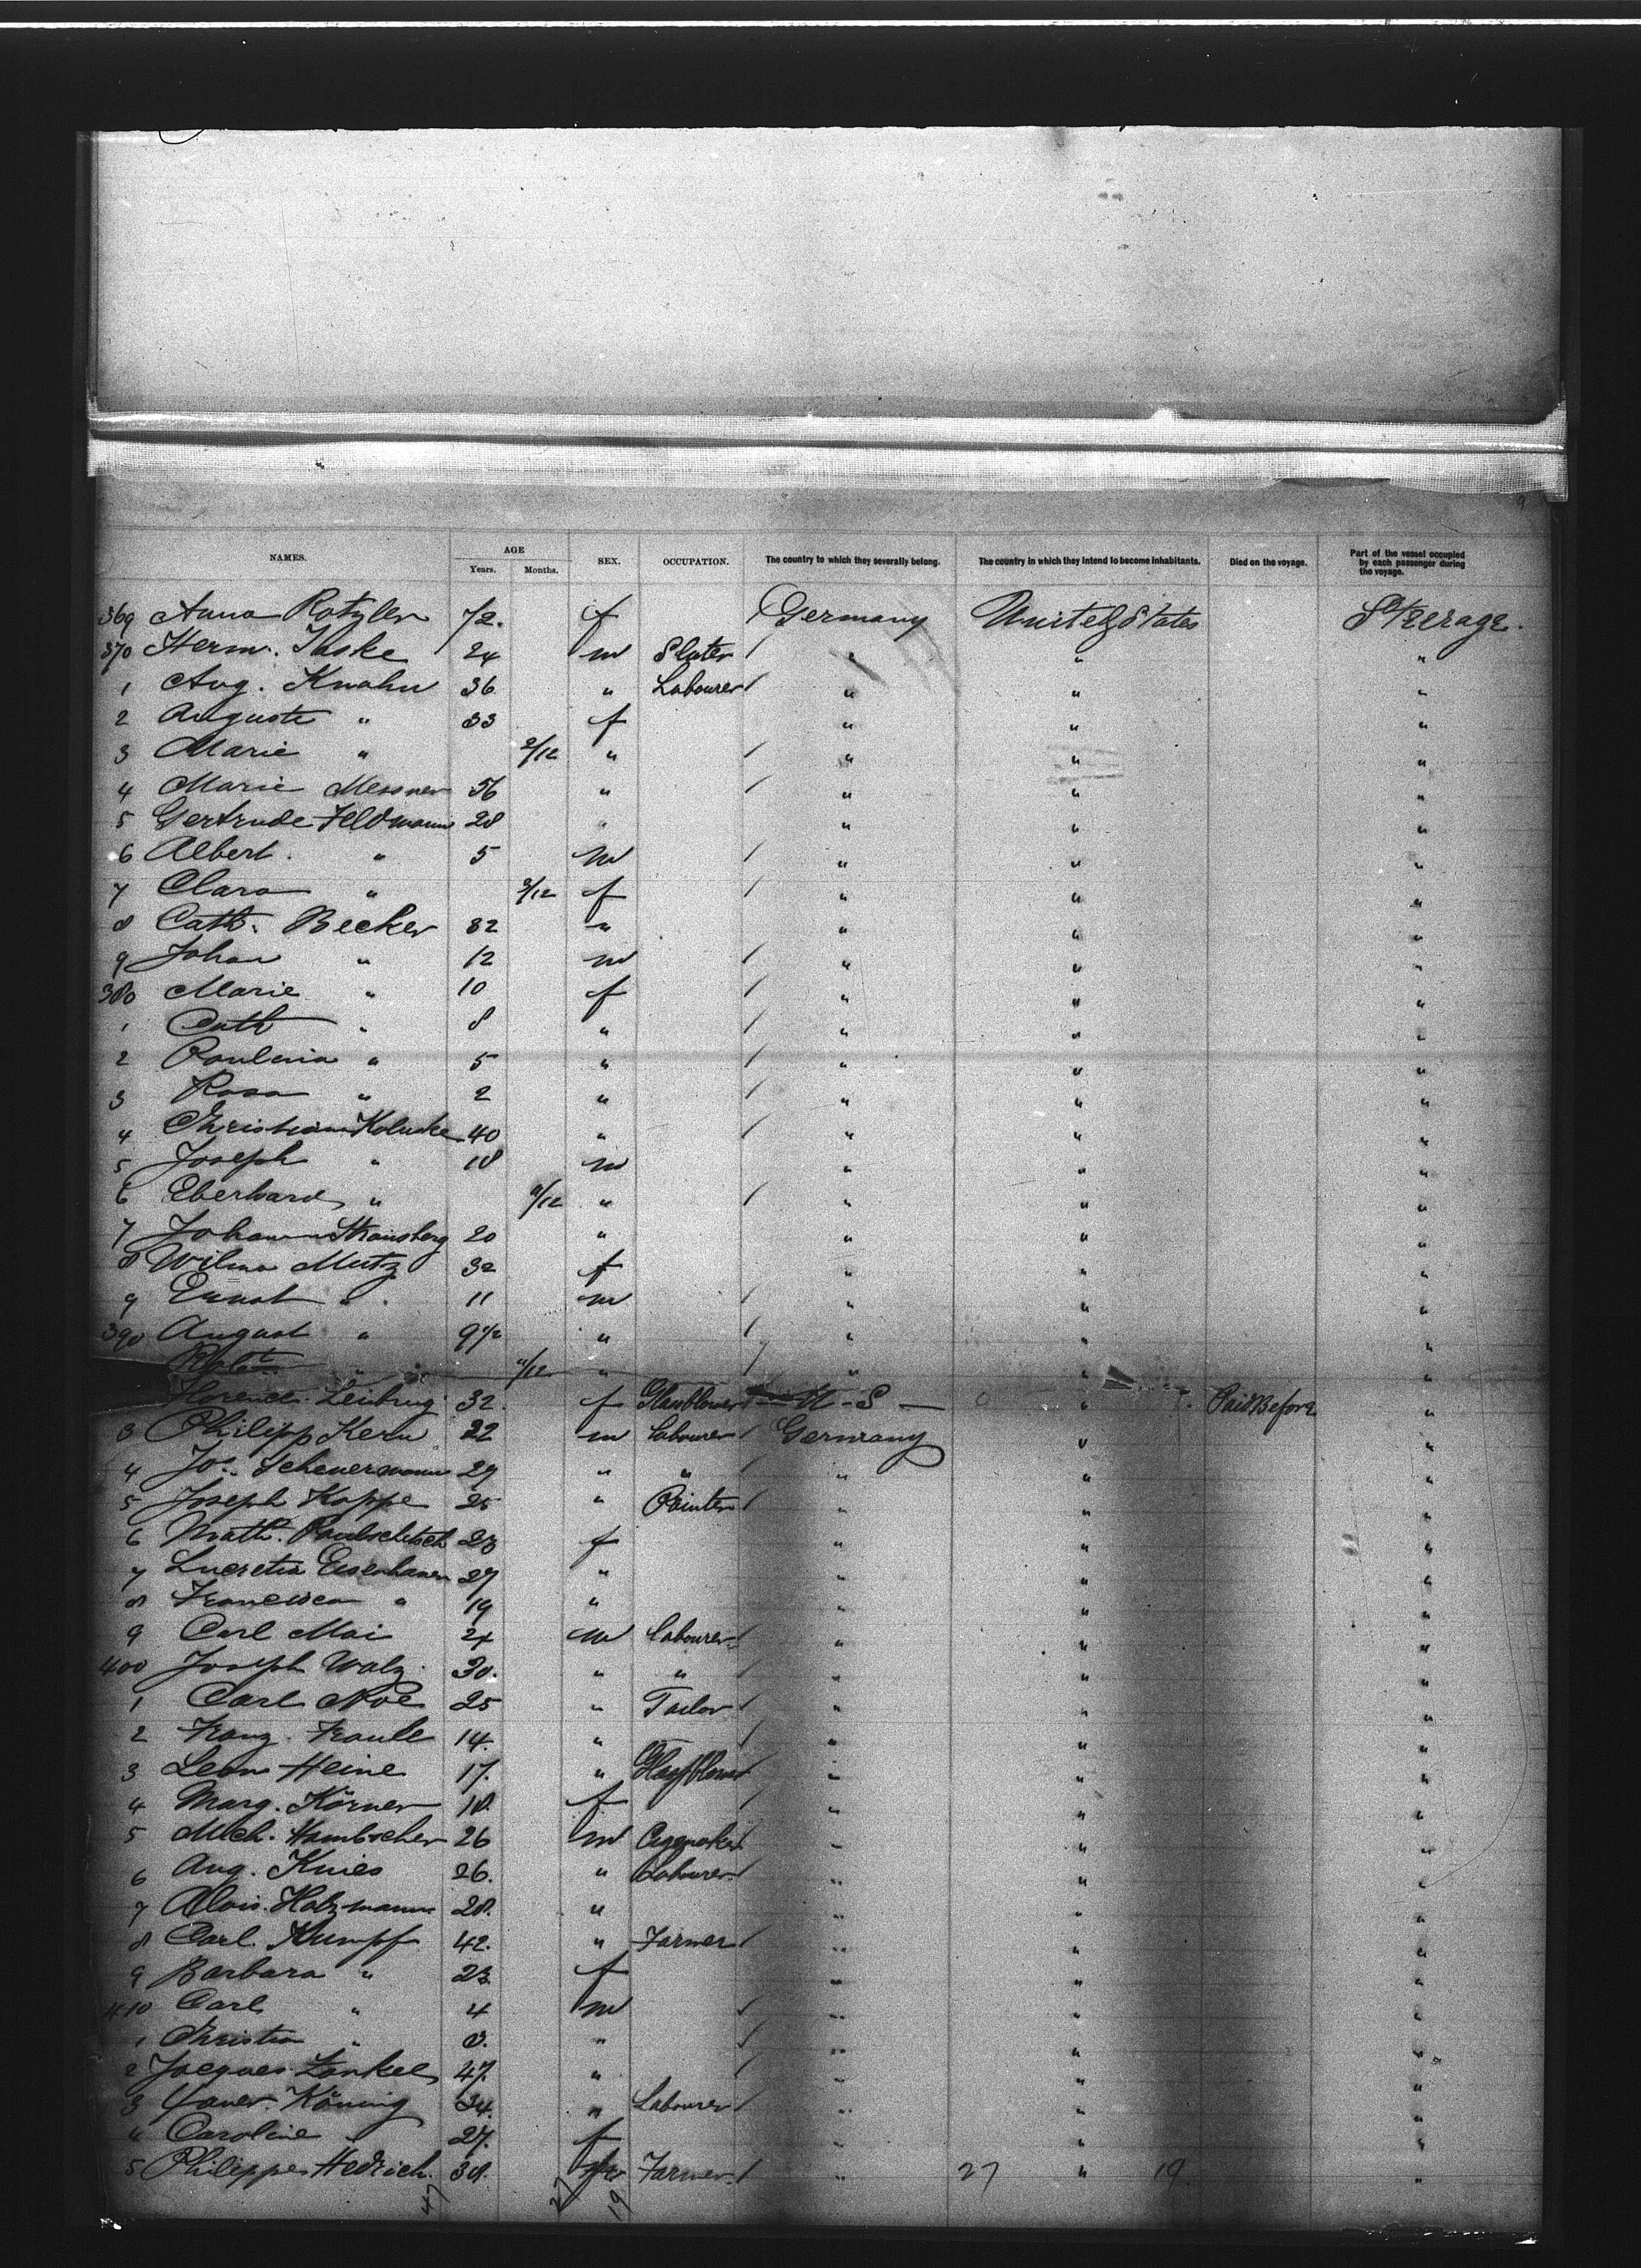 9
NAMES. AGE Years. Months. SEX. OCCUPATION. The country to which they severally belong. The country in which they intend to become inhabitants. Died on the voyage. Part of the vessel occupied by each passenger during the voyage.
369 Anna Rotzler 72. f Germany United States Steerage.
370 Herm. Taske 24 m Slater / " " "
1 Aug. Knahn 36 " Labourer / " " "
2 Auguste " 33 f " " "
3 Marie " 2/12 " / " " "
4 Marie Messner 56 " / " " "
5 Gertrude Feldmann 28 " " " "
6 Albert " 5 m / " " "
7 Clara " 3/12 f / " " "
8 Cath. Becker 32 " " " "
9 Johan " 12 m / " " "
380 Marie " 10 f / " " "
1 Cath " 8 " / " " "
2 Paulina " 5 " / " " "
3 Rosa " 2 " / " " "
4 Christian 40 " / " " "
5 Joseph " 18 m " " "
6 Eberhard " /12 " / " " "
7 Johann Strausberg 20 " " " "
8 Wilma Mutz 32 f " " "
9 Ernst " 11 m / " " "
390 August " 9 1/2 " / " " "
Robt " 11/12 " / " " "
Florence 32. f Glassblower U-S " Paid Before "
3 Philipp Kern 22 m Labourer / Germany " "
4 Jos. Scheuermann 29 " " / " " "
5 Joseph Koppe 25 " Painter / " " "
6 Math. 23 f " " "
7 Lucretia Eisenhauer 27 " " " "
8 Francisca " 19 " " " "
9 Carl Mai 24 m Labourer / " " "
400 Joseph Walz 30. " " / " " "
1 Carl Noe 25 " Tailor / " " "
2 Franz Traule 14. " / " " "
3 Leon Heine 17. " Glassblower / " " "
4 Marg. Körner 18. f / " " "
5 Mich. Hambscher 26 m / " " "
6 Aug. Knies 26. " Labourer / " " "
7 Alois Holzmann 28. " " " "
8 Carl Kumpf 42. " Farmer / " " "
9 Barbara " 23. f " " "
410 Carl " 4 m / " " "
1 Christian " " / " " "
2 Jacques 47. " / " " "
3 Xaver König 24. " Labourer / " " "
4 Caroline " 27. f " " "
5 Philippe Hedrich. 38. m Farmer / " 27 " 19. "
47 27 19